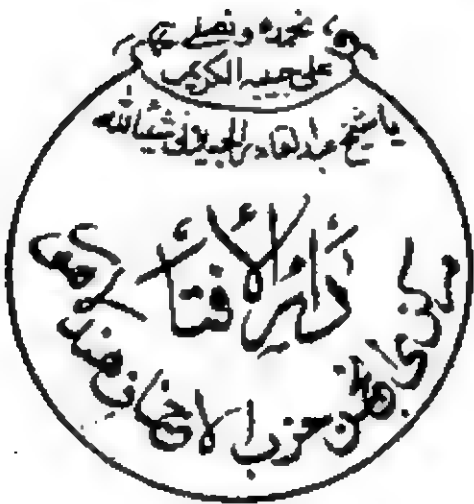 نحمده و نصلے
علی حبیبہ الکریم
یا شیخ عبدالقادر الجیلانی شیئاً للہ
دَارُ الْاِفتَاء
مرکزی انجمن حزب الاحناف ہند لاہور